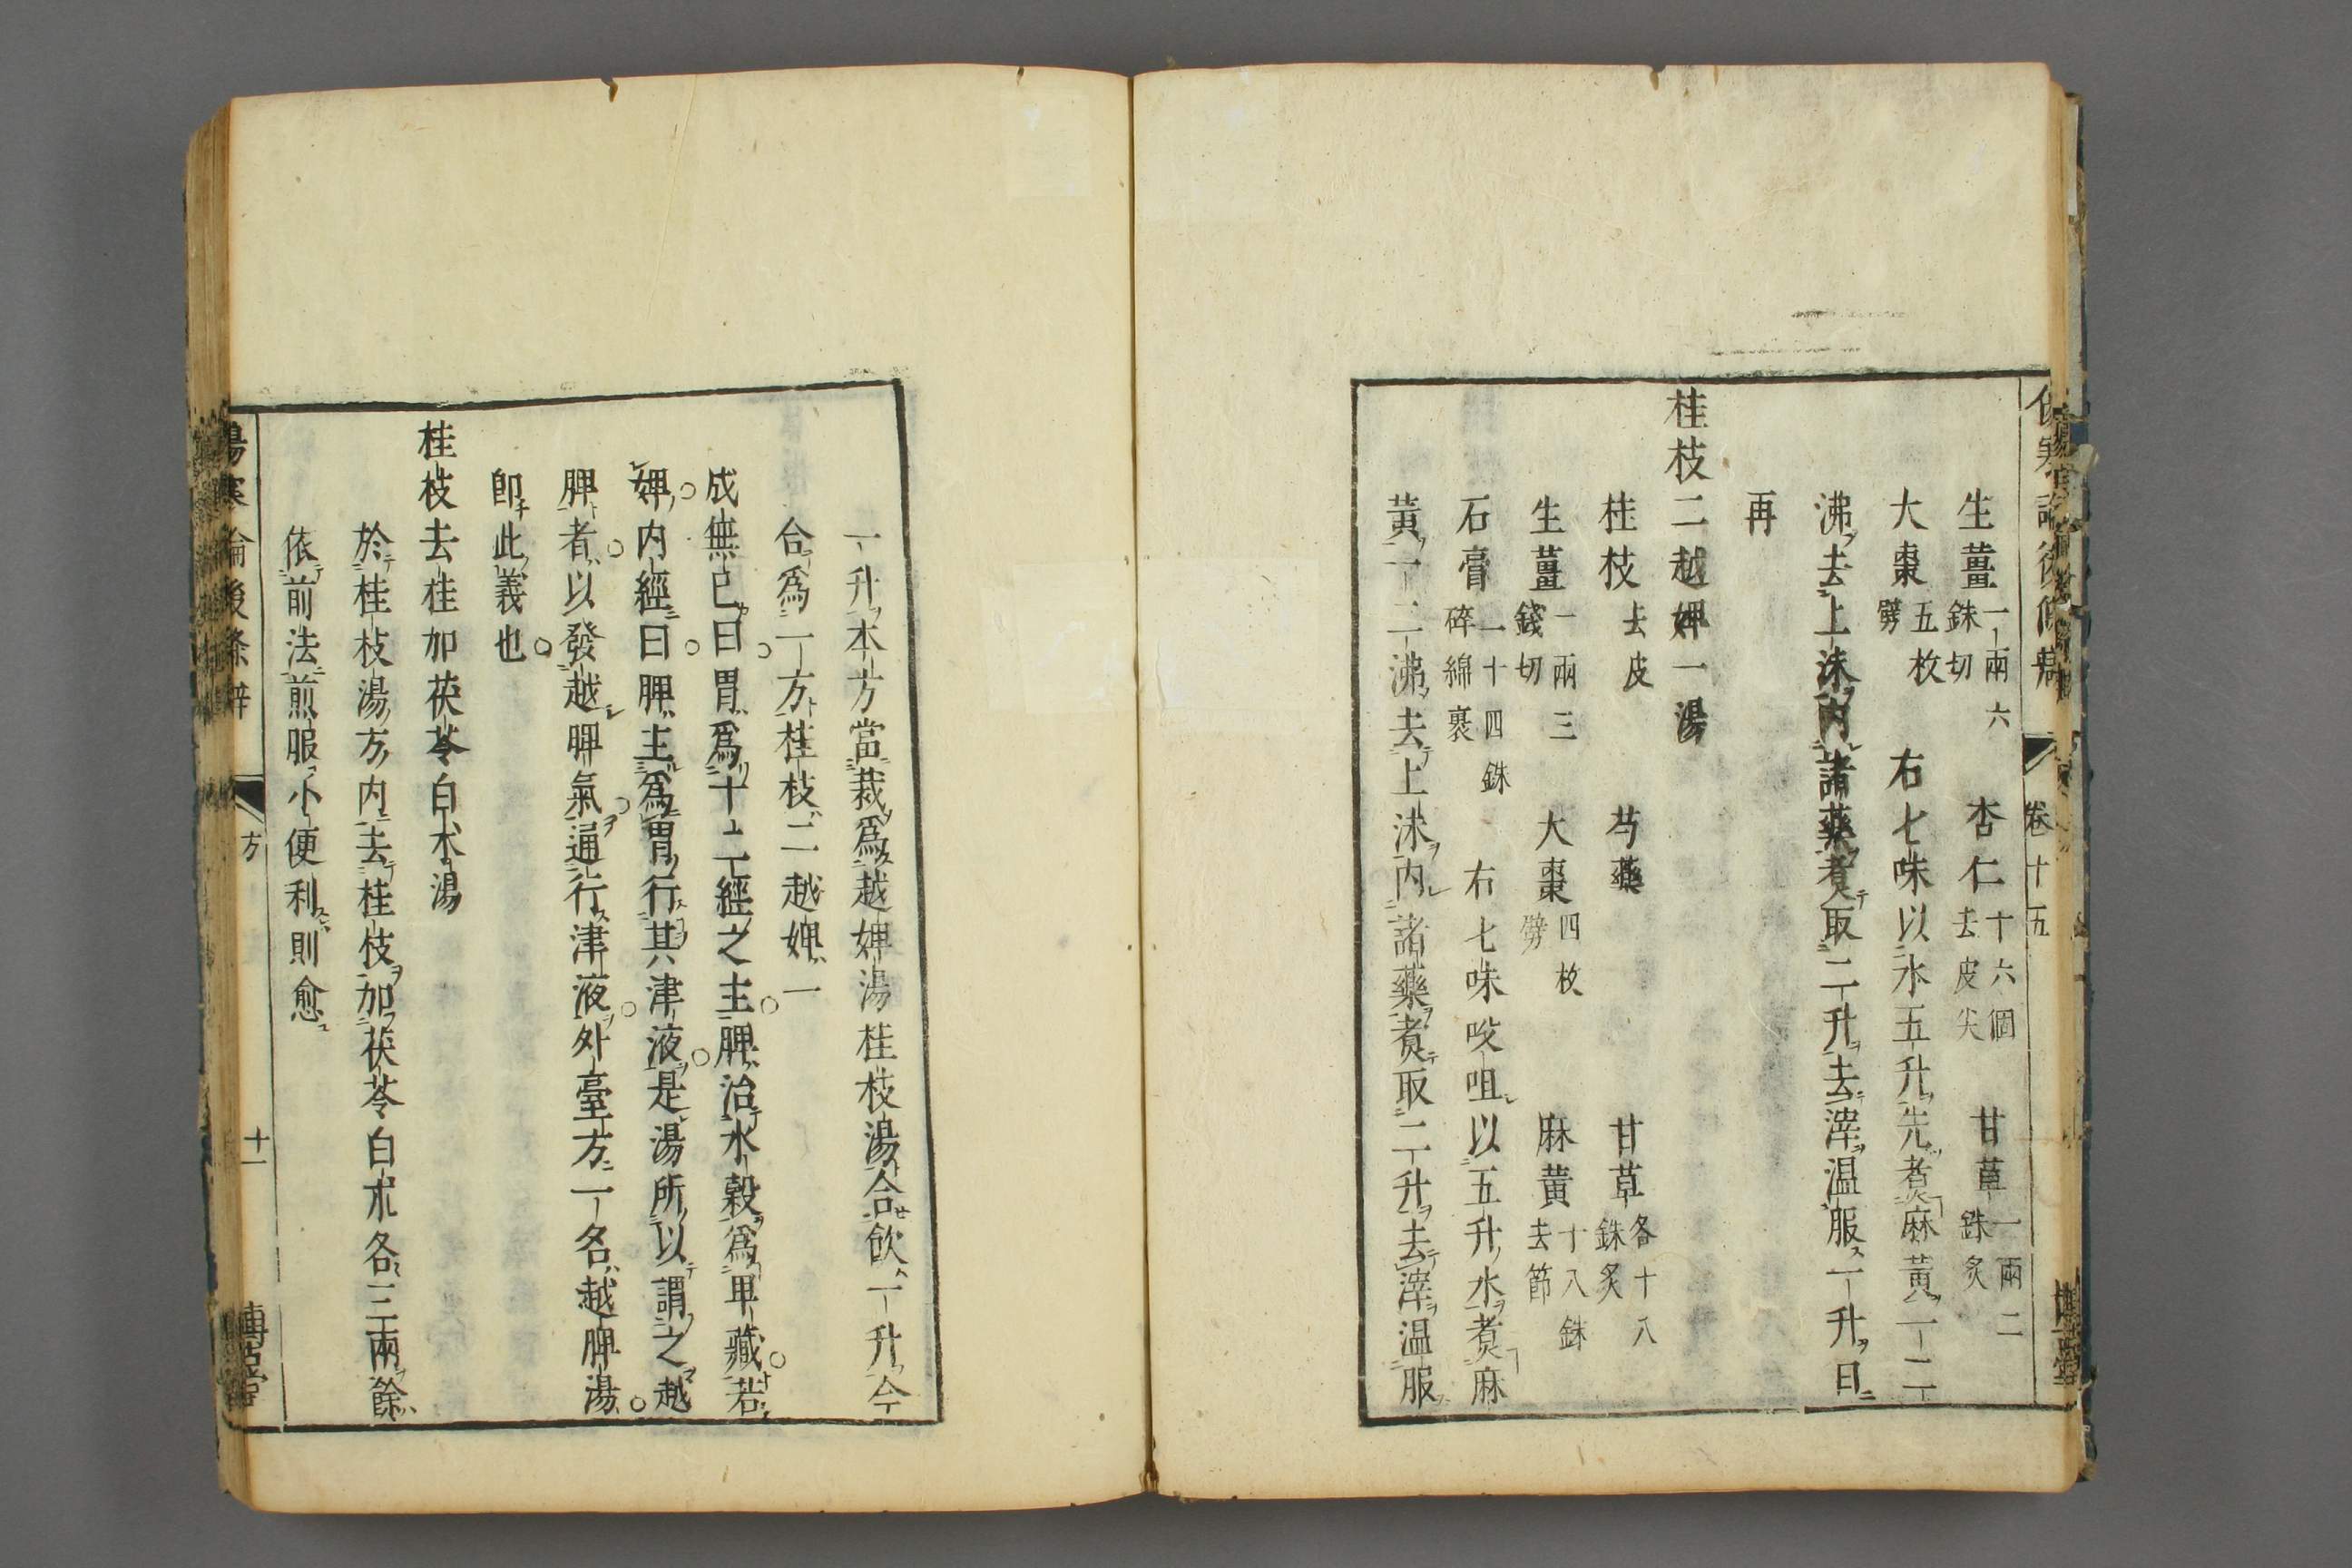 生薑一兩六銖切 杏仁十六個去皮尖 甘草一兩二銖炙
大棗五枚劈 右七味以水五升先煮麻黃一二
沸去上沫內諸藥煮取二升去滓温服一升日
再
桂枝二越婢一湯
桂枝去皮 芍藥 甘草各十八銖炙
生薑一兩三錢切 大棗四枚劈 麻黃十八銖去節
石膏一十四銖碎綿裹 右七味㕮咀以五升水煮麻
黃一二沸去上沫內諸藥煮取二升去滓温服
卷十五
一升本方當裁為越婢湯桂枝湯合飲一升今
合為一方桂枝二越婢一
成無已曰胃為十二經之主脾治水穀為卑藏若
婢內經曰脾主為胃行其津液是湯所以謂之越
脾者以發越脾氣通行津液外臺方一名越脾湯
卽此義也
桂枝去桂加茯苓白朮湯
於桂枝湯方內去桂枝加茯苓白朮各三兩餘
依前法煎服小便利則愈
方 十一